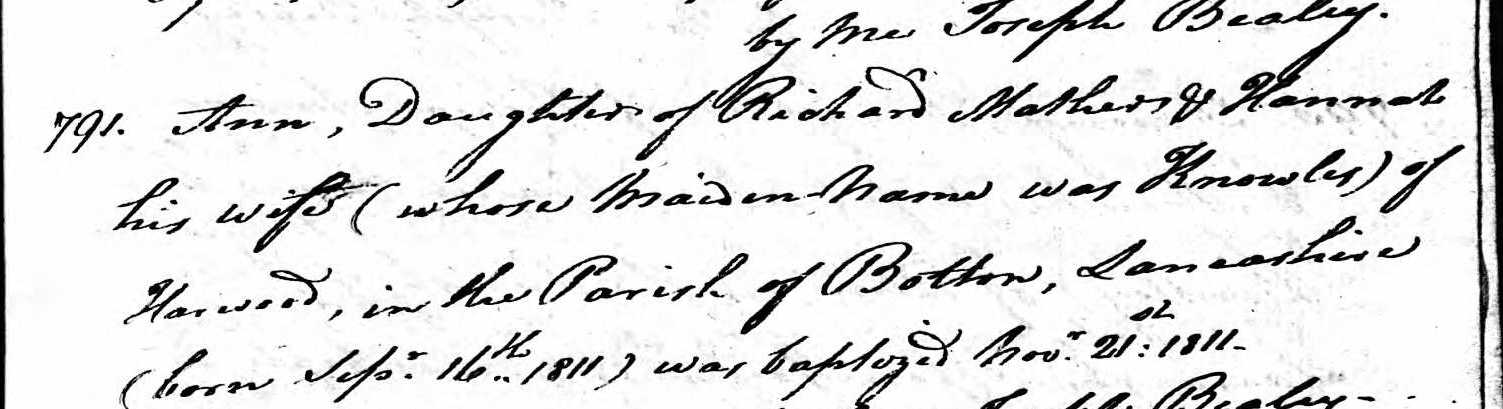 by me Joseph Bealey.
791. Ann, Daughter of Richard Mathers & Hannah
his wife (whose maiden name was Knowles) of
Harwood, in the Parish of Bolton, Lancashire
(born Sepr. 16th. 1811) was baptized Novr. 21st: 1811.
Joseph Bealey-